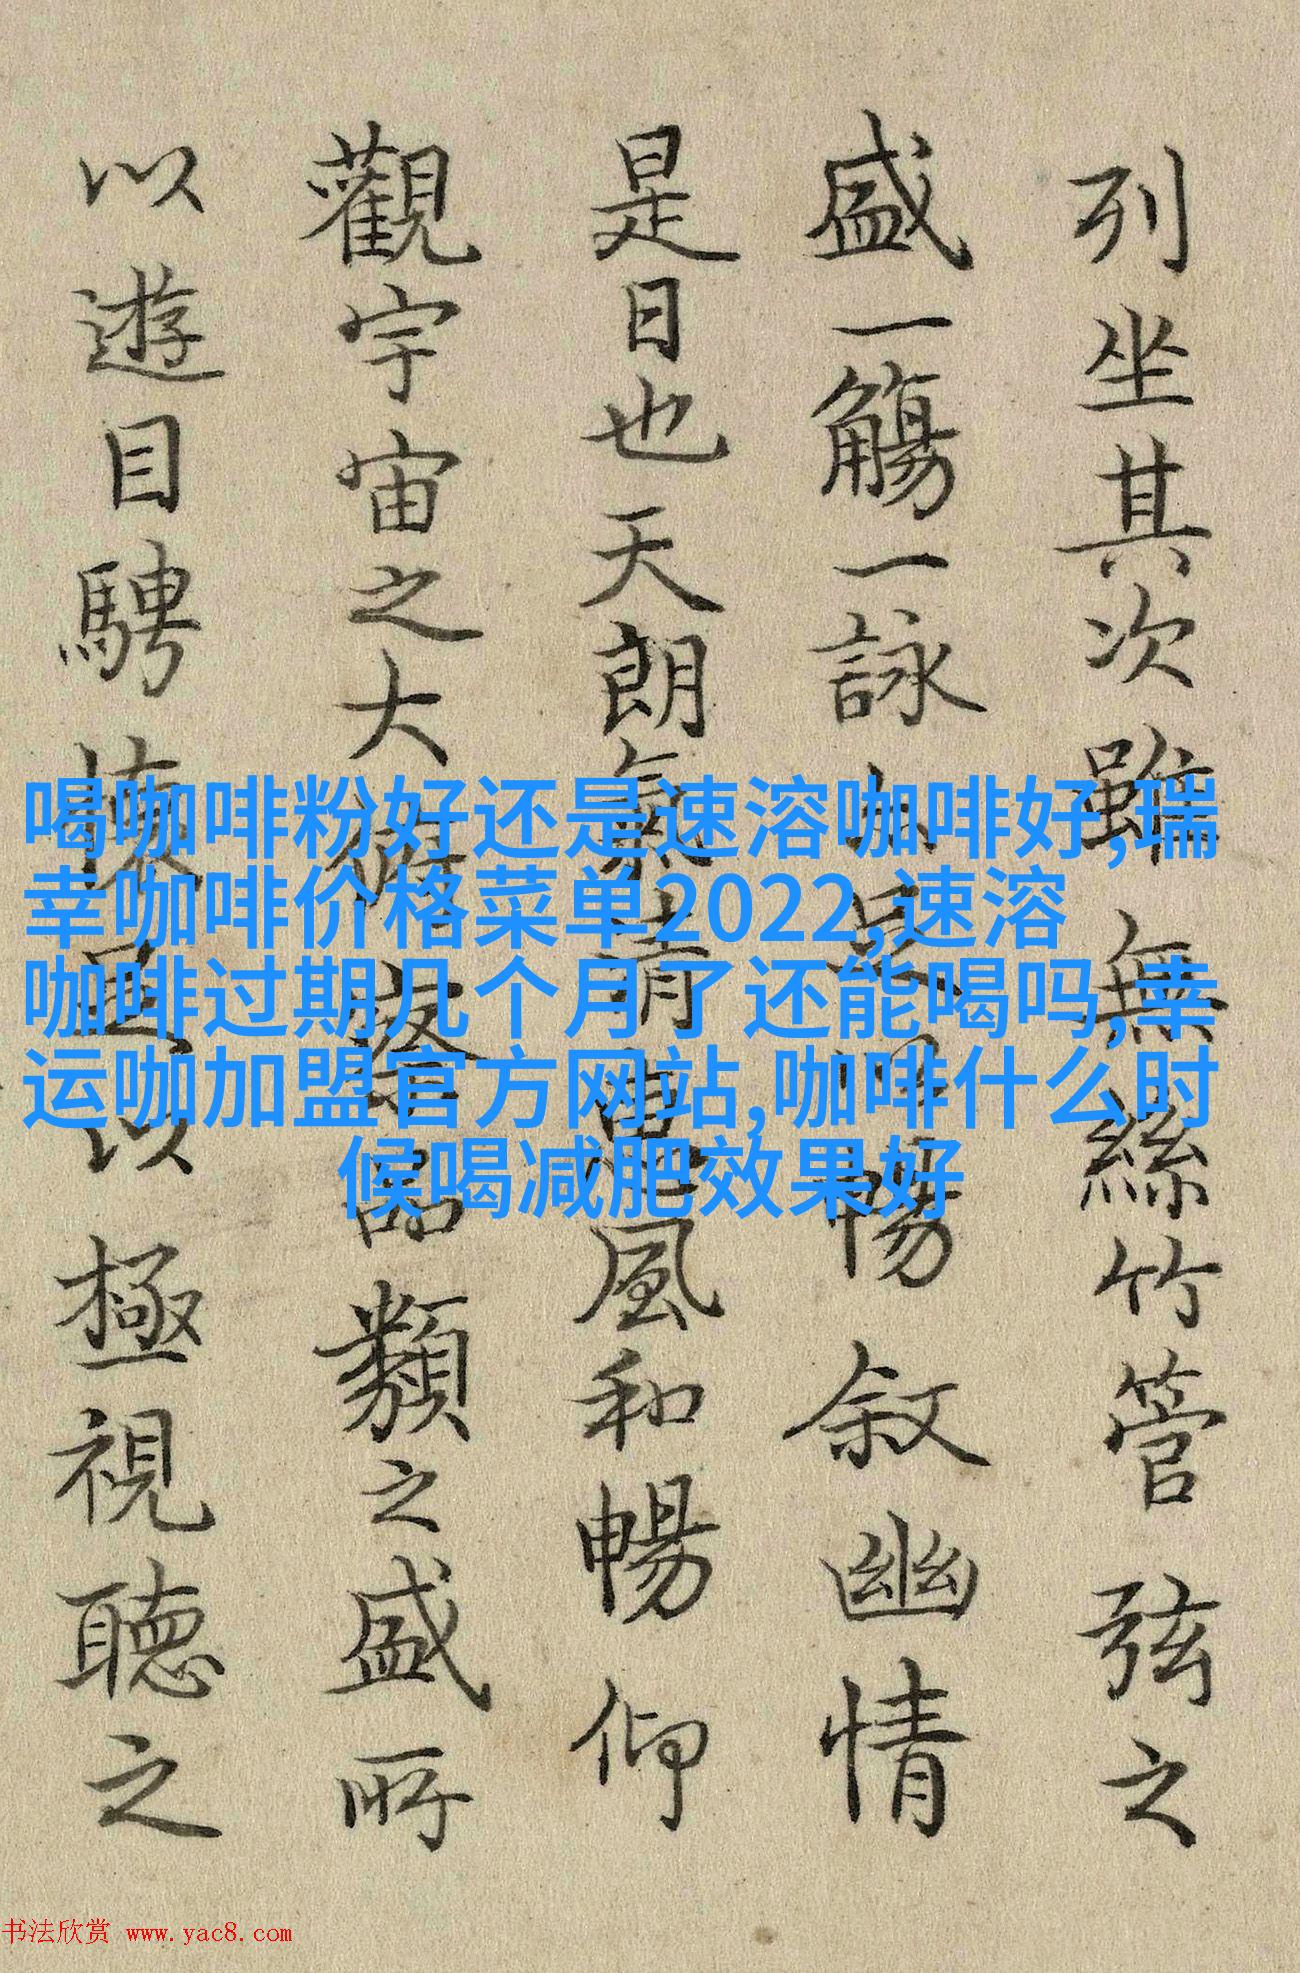 列坐其次雖無絲竹管弦之
盛一觴一詠亦足以暢叙幽情
是日也天朗氣清惠風和暢仰
觀宇宙之大俯察品類之盛所
以遊目騁懷足以極視聽之
喝咖啡粉好还是速溶咖啡好,瑞
幸咖啡价格菜单2022,速溶
咖啡过期几个月了还能喝吗,幸
运咖加盟官方网站,咖啡什么时
候喝减肥效果好
书法欣赏 www.yac8.com